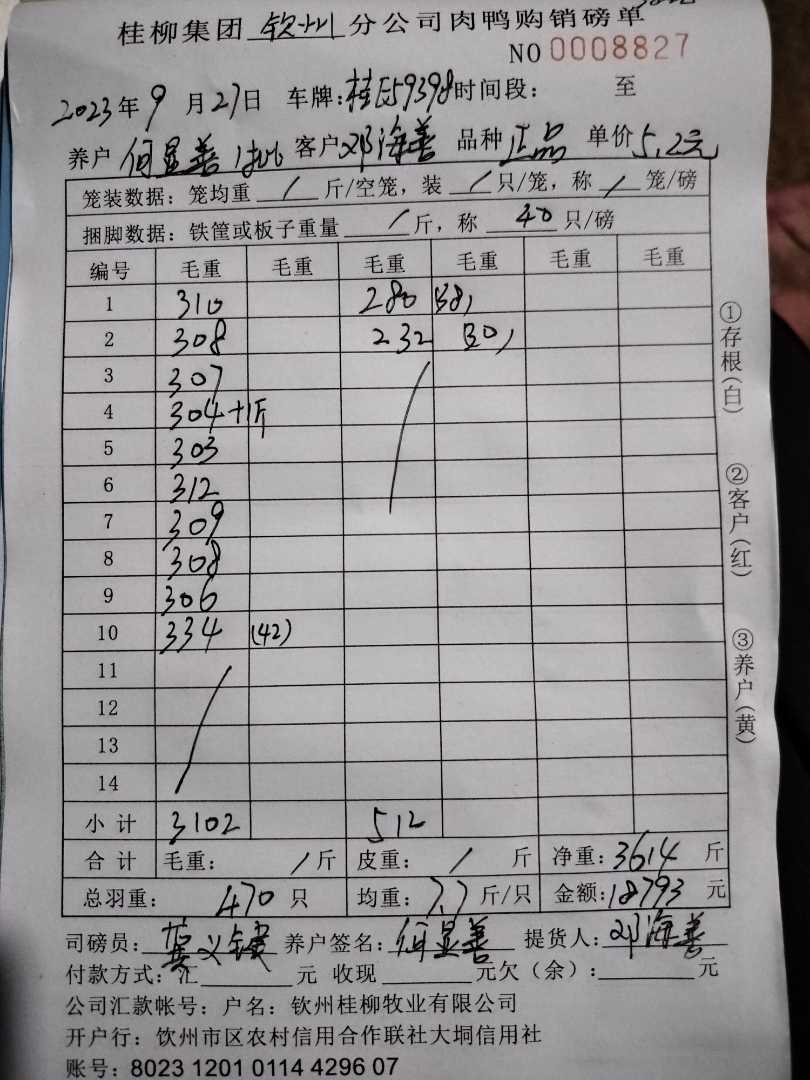 桂柳集团 钦州 分公司肉鸭购销磅单
NO 0008827
2023年9月27日 车牌:桂E59398时间段: 至
养户 何显善 1批 客户 邓海善 品种 正品 单价 5.2元
笼装数据:笼均重 / 斤/空笼,装 / 只/笼,称 / 笼/磅
捆脚数据:铁筐或板子重量 / 斤,称 40 只/磅
编号 毛重 毛重 毛重 毛重 毛重 毛重
1 310 280 (38)
2 308 232 (30)
3 307
4 304+1斤
5 303
6 312
7 309
8 308
9 306
10 334 (42)
11
12
13
14
小计 3102 512
合计 毛重: / 斤 皮重: / 斤 净重:3614 斤
总羽重: 470 只 均重: 7.7 斤/只 金额:18793 元
司磅员: 义 养户签名: 何显善 提货人: 邓海善
付款方式:汇 元 收现 元欠(余): 元
公司汇款帐号:户名:钦州桂柳牧业有限公司
开户行:饮州市区农村信用合作联社大垌信用社
账号:8023 1201 0114 4296 07
①存根(白)
②客户(红)
③养户(黄)